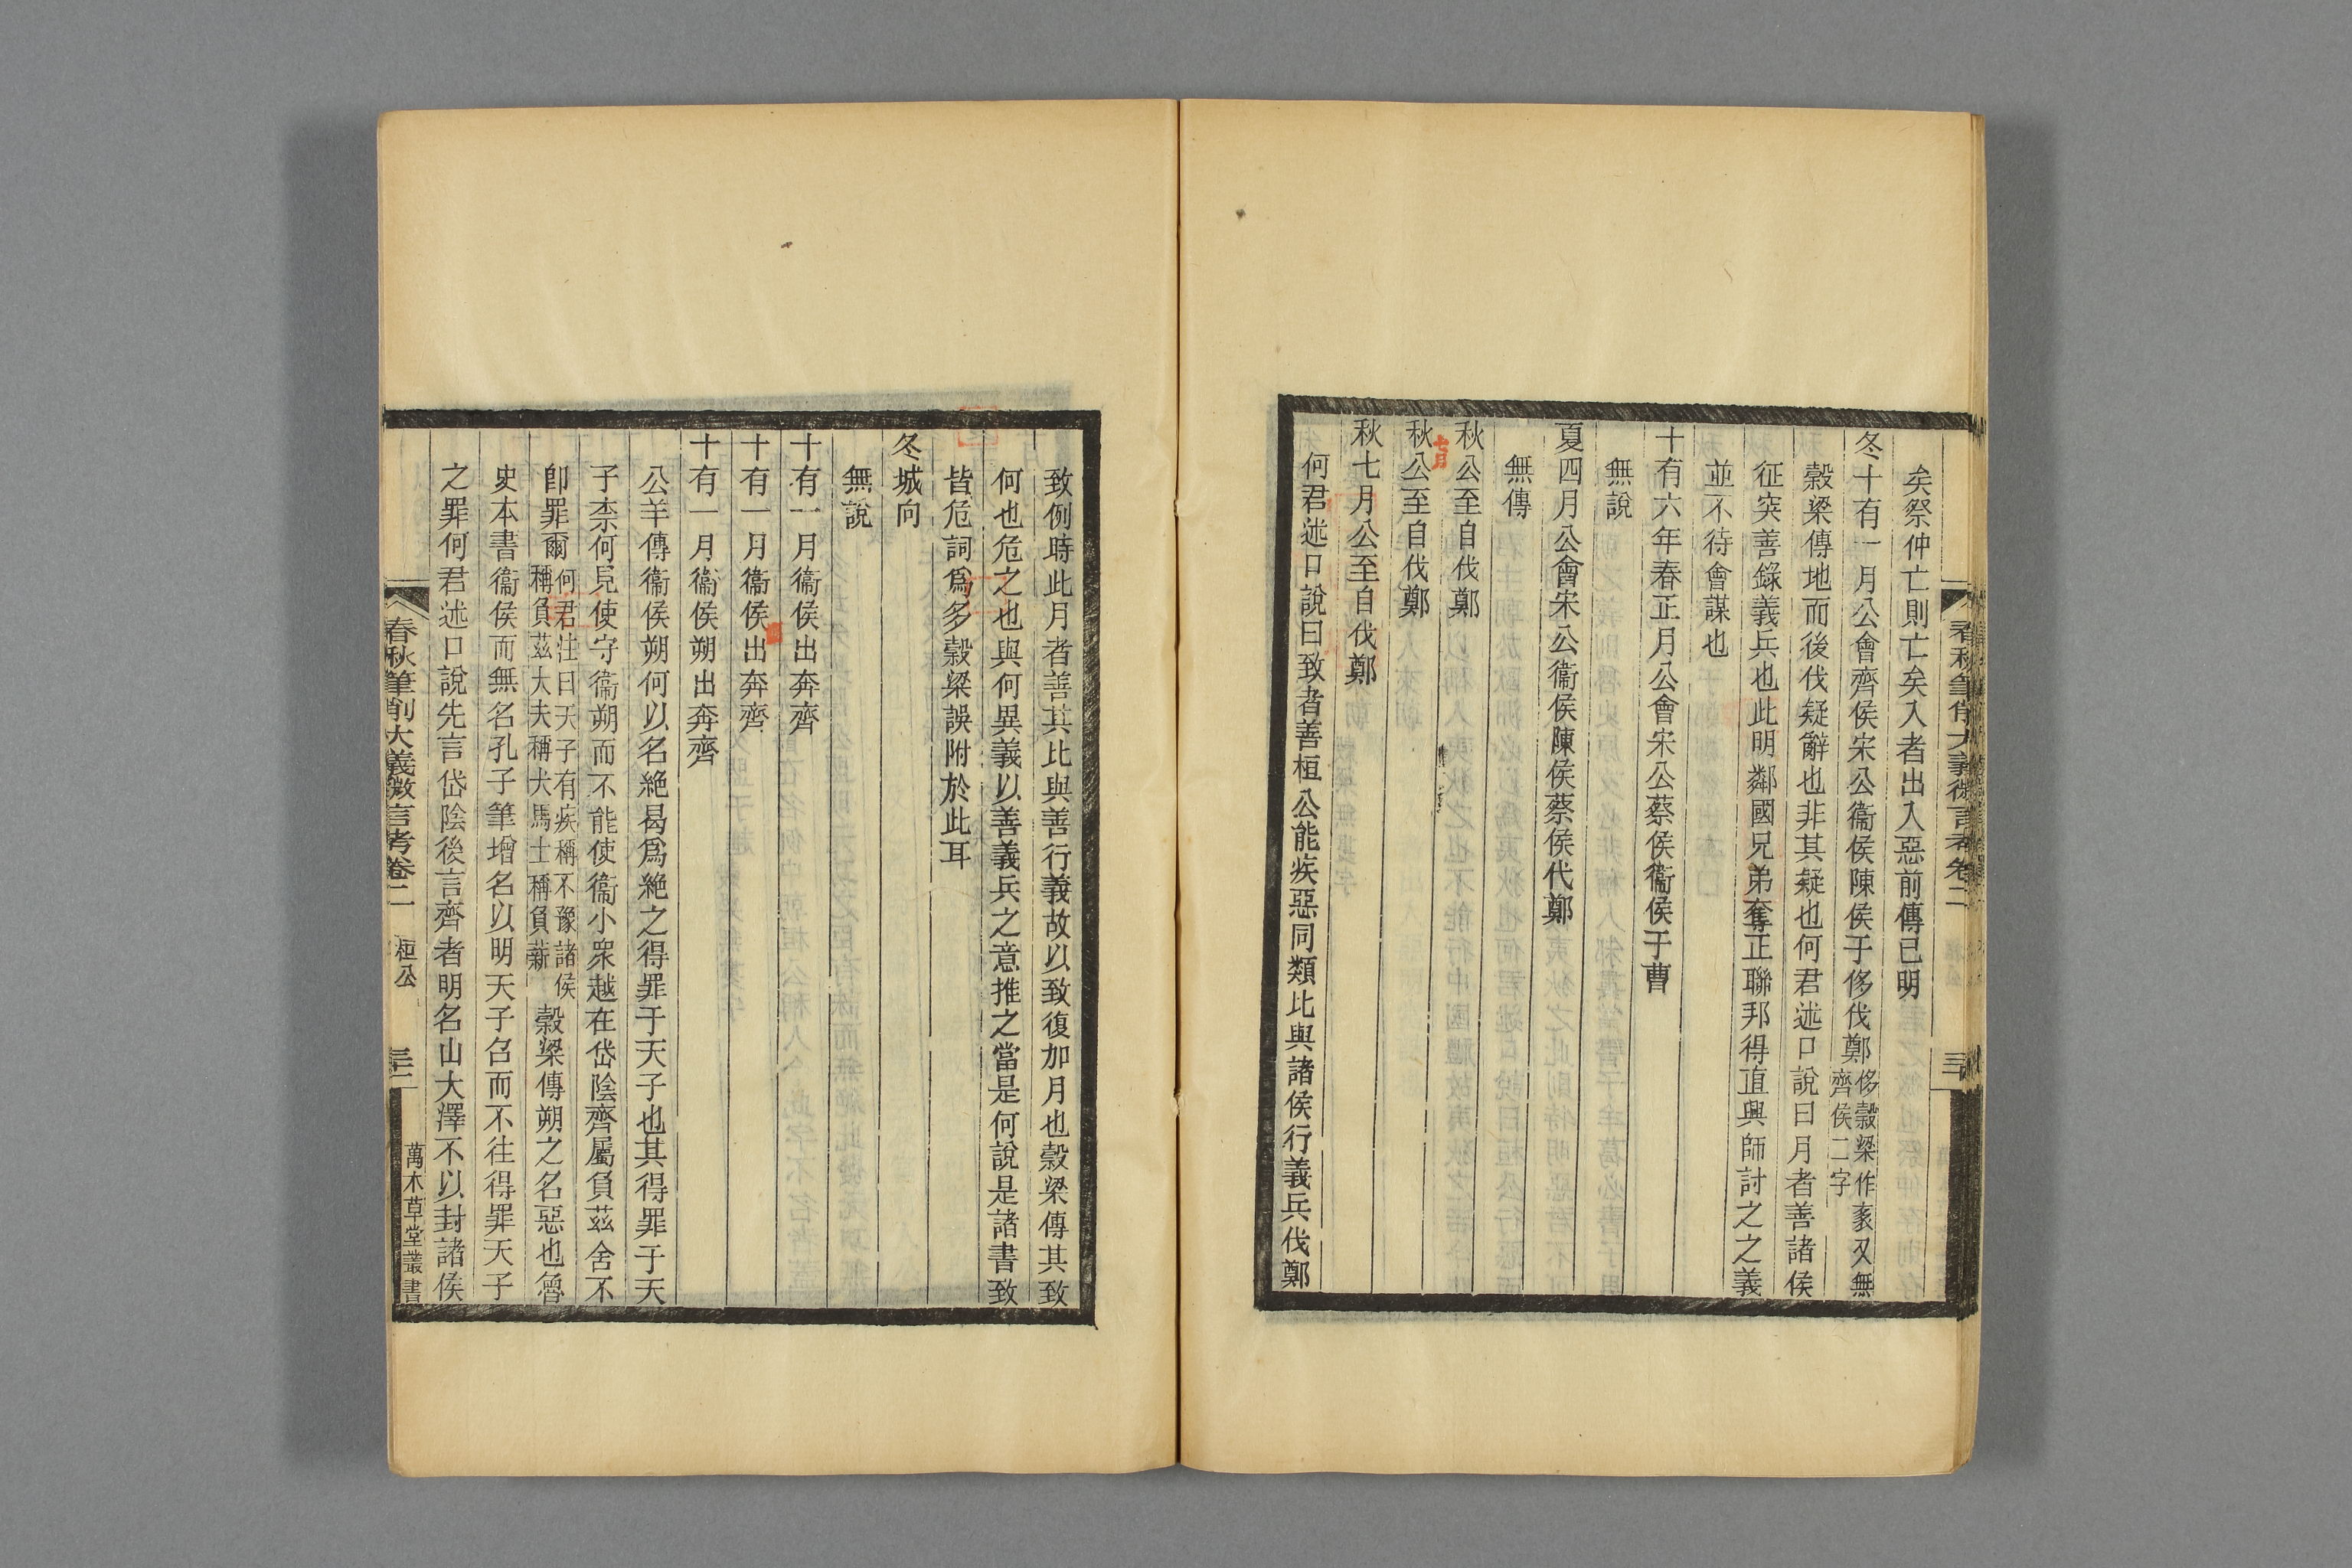 矣祭仲亡則亡矣入者出入惡前傳已明
冬十有一月公會齊侯宋公衞侯陳侯于侈伐鄭侈穀梁作袲又無齊侯二字
穀梁傳地而後伐疑辭也非其疑也何君述口說曰月者善諸侯
征突善錄義兵也此明鄰國兄弟奪正聯邦得直興師討之之義
並不待會謀也
十有六年春正月公會宋公蔡侯衞侯于曹
無說
夏四月公會宋公衞侯陳侯蔡侯伐鄭
無傳
秋公至自伐鄭
秋七月公至自伐鄭
秋七月公至自伐鄭
何君述口說曰致者善桓公能疾惡同類比與諸侯行義兵伐鄭
致例時此月者善其比與善行義故以致復加月也穀梁傳其致
何也危之也與何異義以善義兵之意推之當是何說是諸書致
皆危詞爲多穀梁誤附於此耳
冬城向
無說
十有一月衞侯出奔齊
十有一月衞侯出奔齊
十有一月衞侯朔出奔齊
公羊傳衞侯朔何以名絶曷爲絶之得罪于天子也其得罪于天
子柰何見使守衞朔而不能使衞小衆越在岱陰齊屬負茲舍不
卽罪爾何君注曰天子有疾稱不豫諸侯稱負茲大夫稱犬馬士稱負薪穀梁傳朔之名惡也魯
史本書衞侯而無名孔子筆增名以明天子召而不往得罪天子
之罪何君述口說先言岱陰後言齊者明名山大澤不以封諸侯
春秋筆削大義微言考卷二 桓公
萬木草堂叢書